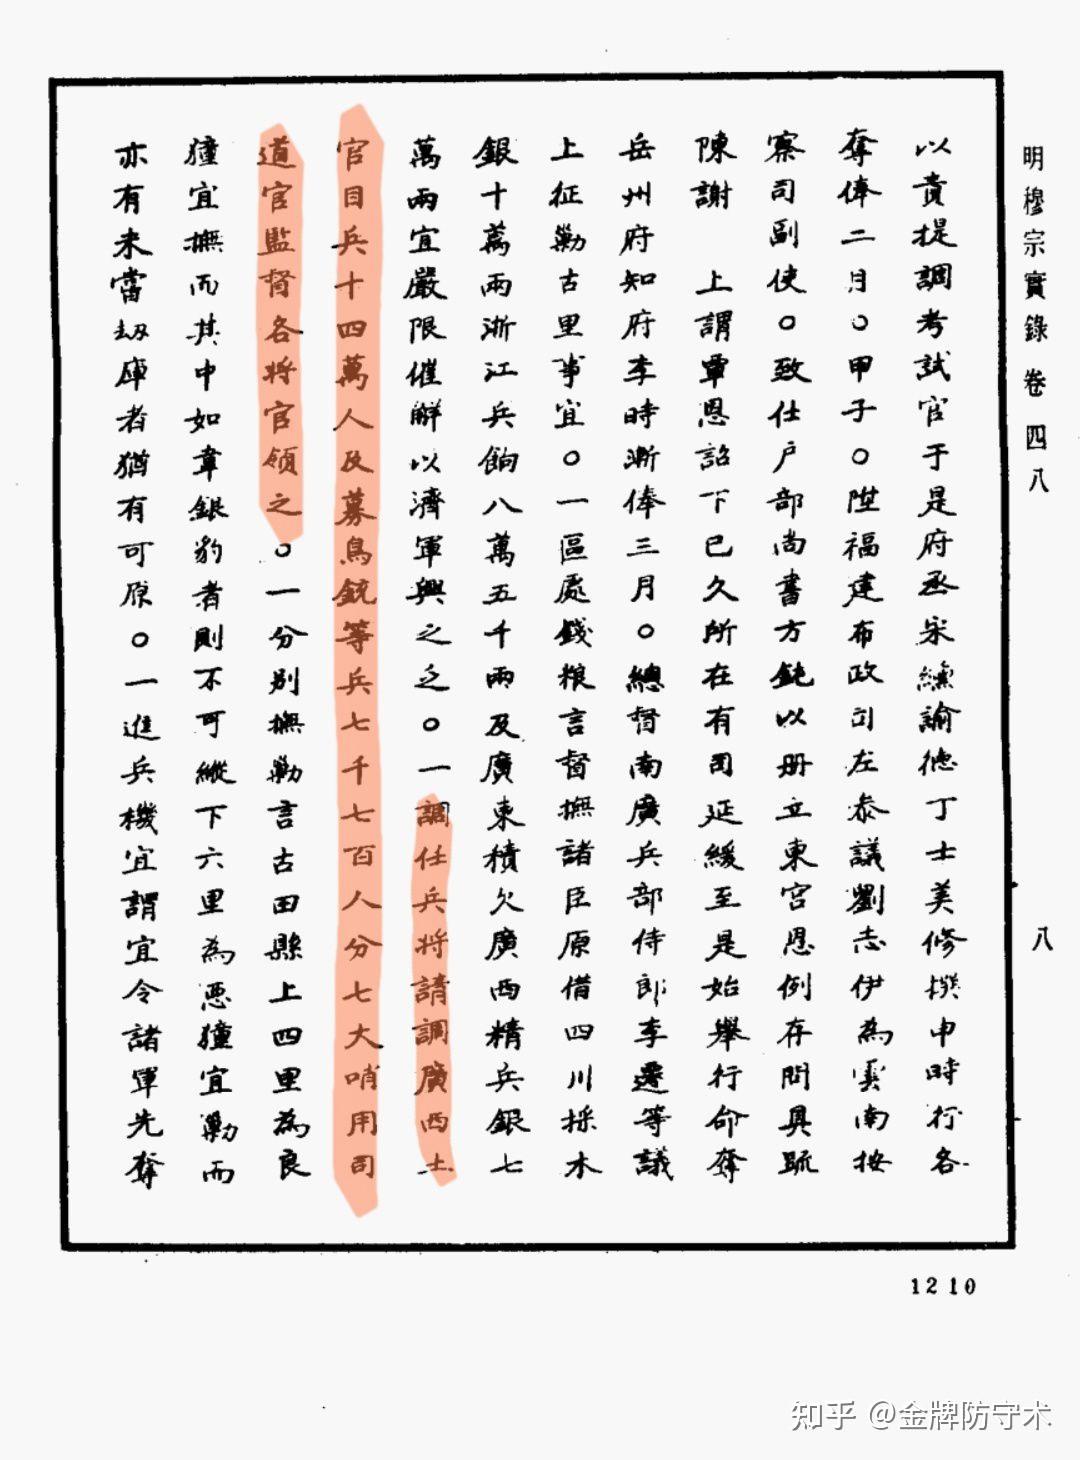 明穆宗實錄卷四八
八
以貴提調考試官于是府丞宋纁諭德丁士美修撰申時行各
奪俸二月○甲子○陞福建布政司左叅議劉志伊為雲南按
察司副使○致仕户部尚書方鈍以册立東宮恩例存問具疏
陳謝 上謂覃恩詔下已久所在有司延緩至是始舉行命奪
岳州府知府李時漸俸三月○總督南廣兵部侍郎李遷等議
上征勦古里事宜○一區處錢粮言督撫諸臣原借四川採木
銀十萬兩浙江兵餉八萬五千兩及廣東積欠廣西精兵銀七
萬兩宜嚴限催解以濟軍興之乏○一調任兵將請調廣西土
官目兵十四萬人及募鳥銃等兵七千七百人分七大哨用司
道官監督各將官領之○一分別撫勦言古田縣上四里為良
獞宜撫而其中如韋銀豹者則不可縱下六里為惡獞宜勦而
亦有未當劫庫者猶有可原○一進兵機宜謂宜令諸軍先奪
1210
知乎 @金牌防守术